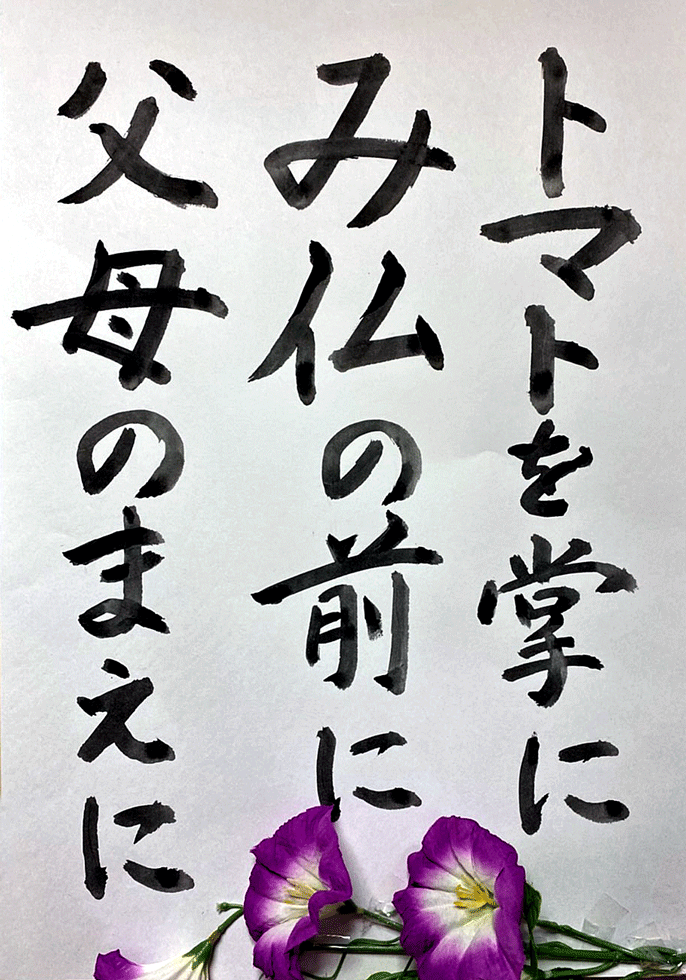 トマトを掌に
み仏の前に
父母のまえに